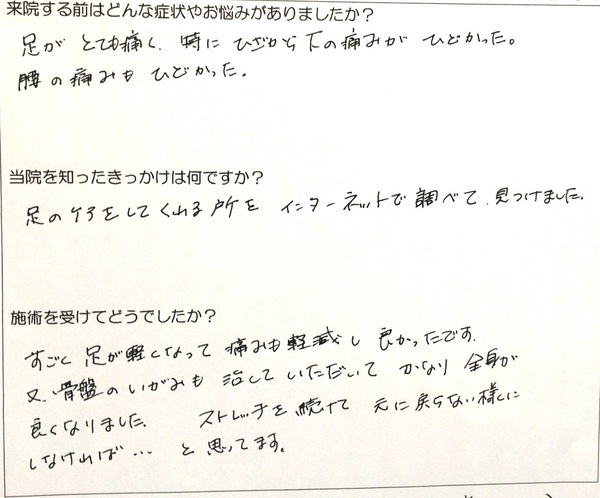 来院する前はどんな症状やお悩みがありましたか？
足が とても痛く、特に ひざから下の痛みが ひどかった。
腰の痛みも ひどかった。
当院を知ったきっかけは何ですか？
足のケアをしてくれる所を インターネットで調べて、見つけました。
施術を受けてどうでしたか？
すごく 足が軽くなって 痛みも軽減し 良かったです。
又、骨盤のいがみも 治していただいて かなり 全身が
良くなりました。 ストレッチを続けて 元に戻らない様に
しなければ… と思ってます。